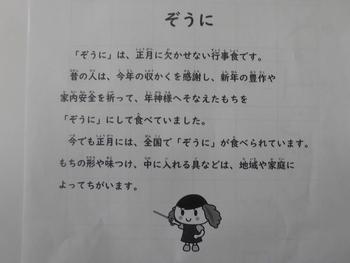 ぞうに
「ぞうに」は、正月に欠かせない行事食です。
昔の人は、今年の収かくを感謝し、新年の豊作や
家内安全を祈って、年神様へそなえたもちを
「ぞうに」にして食べていました。
今でも正月には、全国で「ぞうに」が食べられています。
もちの形や味つけ、中に入れる具などは、地域や家庭に
よってちがいます。